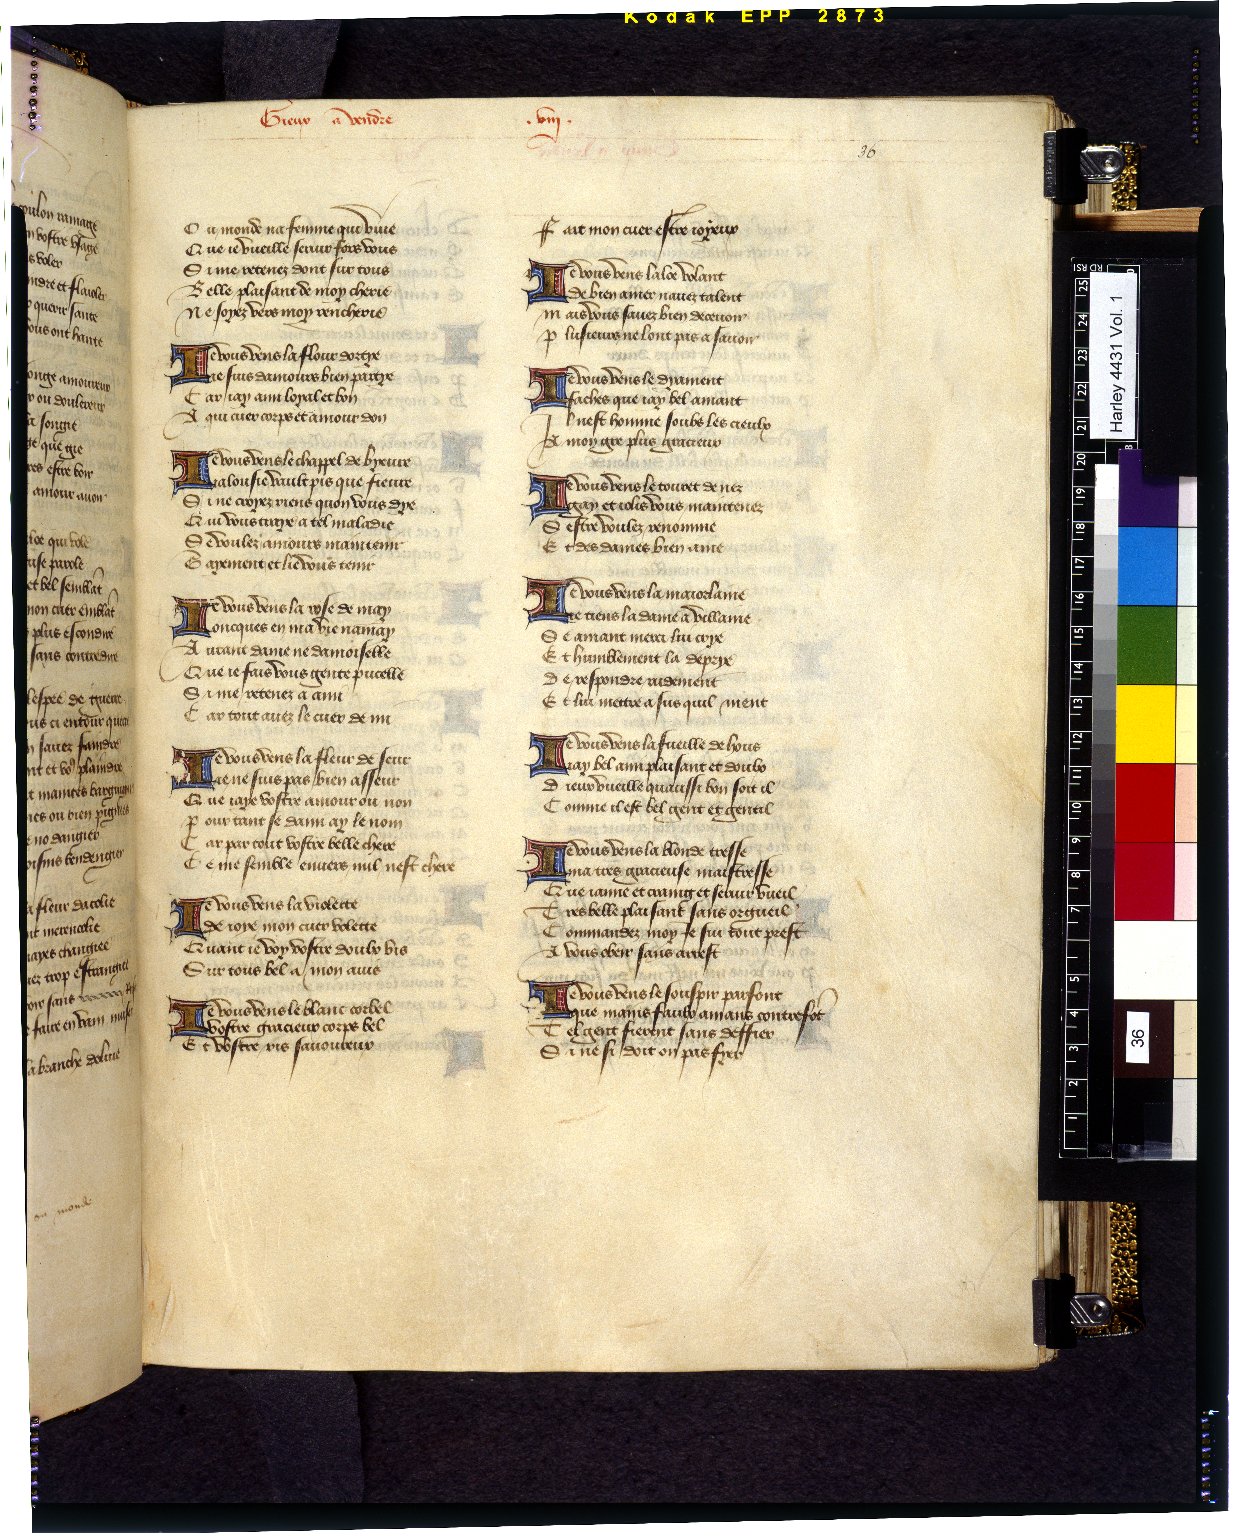 Kodak EPP 2873
Gieux a vendre
. viij .
36
O u monde na femme qui vive
Q ue ie vueille servir fors vous
S i me retenez dont sur tous
B elle plaisant de moy cherie
N e soyez vers moy rencherie
Ie vous vens la flour dortye
ie suis damours bien partye
C ar iay ami loyal et bon
A qui cuer corps et amour don
Ie vous vens le chappel de byeure
ialousie vault pis que fieure
S i ne croyez riens quon vous dye
Q ui vous traye a tel maladie
S e voulez amours maintenir
G ayement et lie vous tenir
Ie vous vens la rose de may
oncques en ma vie namay
A utant dame ne damoiselle
Q ue ie fais vous gente pucelle
S i me retenez a ami
C ar tout avez le cuer de mi
Ie vous vens la fleur de seur
ie ne suis pas bien asseur
Q ue iaye vostre amour ou non
P our tant se dami ay le nom
C ar par tout vostre belle chere
C e me semble envers nul nest chere
Ie vous vens la violette
de ioye mon cuer volette
Q uant ie voy vostre doulx vis
S ur tous bel a mon avis
Ie vous vens le blanc corbel
vostre gracieux corps bel
E t vostre ris savoureux
F ait mon cuer estre ioyeux
Ie vous vens laloe volant
de bien amer navez talent
M ais vous savez bien decevoir
P lusieurs ne lont pas a savoir
Ie vous vens le dyament
saches que iay bel amant
I l nest homme soubs les cieulx
A moy gre plus gracieux
Ie vous vens le touret de nez
gay et iolis vous maintenez
S estre voulez renomme
E t des dames bien ame
Ie vous vens la mariolaine
ie tiens la dame a villaine
S e amant merci lui crye
E t humblement la deprye
D e respondre rudement
E t lui mettre a sus quil ment
Ie vous vens la fueille de hous
iay bel ami plaisant et doulx
D ieux vueille quaussi bon soit il
C omme il est bel gent et gentil
Ie vous vens la blonde tresse
ma tres gracieuse maistresse
Q ue iaime et craing et servir vueil
T res belle plaisant sans orgueil
C ommandez moy ie sui tout prest
A vous obeir sans arrest
Ie vous vens le souspir parfont
que mains faulx amans contrefont
T el gent fierent sans deffier
S i ne si doit on pas fyer
Harley 4431 Vol. 1
36